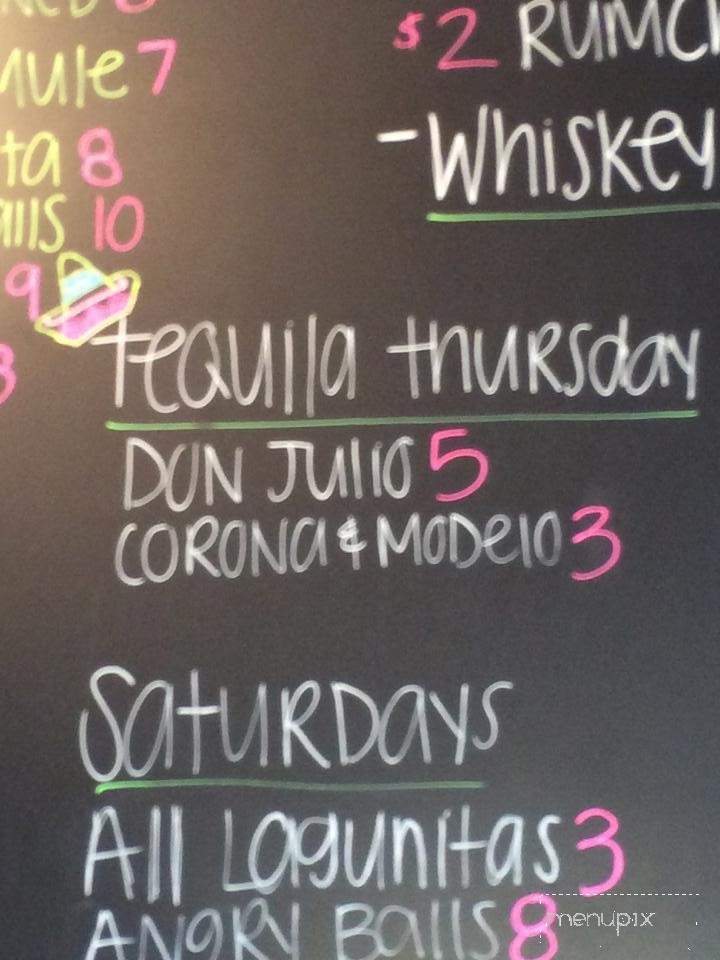 mule 7
8
10
9
$2 RUMC
- Whiskey
tequila thursday
DON JUliO 5
CORONa & MODelO 3
SatURDays
All Lagunitas 3
ANGRY Balls 8
menupix